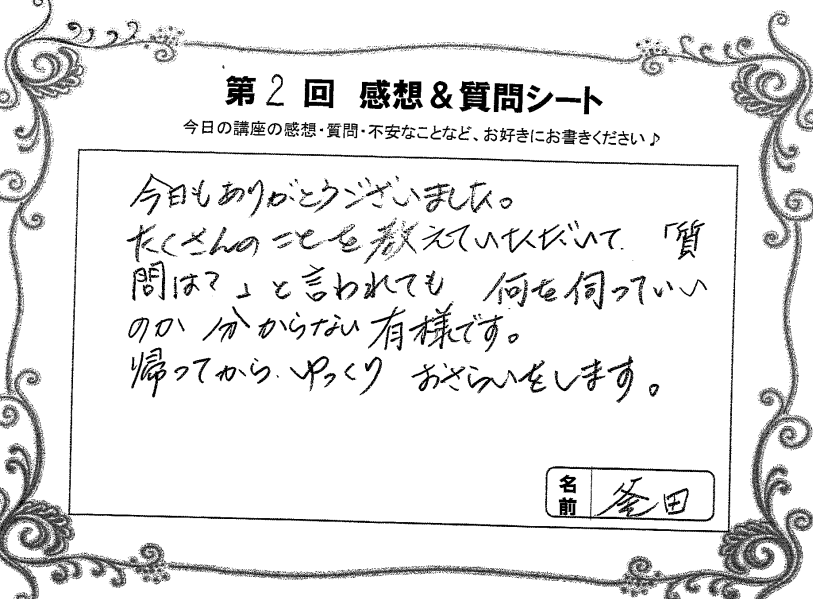 第2回 感想&質問シート
今日の講座の感想・質問・不安なことなど、お好きにお書きください♪
今日もありがとうございました。
たくさんのことを教えていただいて、「質
問は?」と言われても 何を伺っていい
のか 分からない有様です。
帰ってから、ゆっくり おさらいをします。
名前 釜田